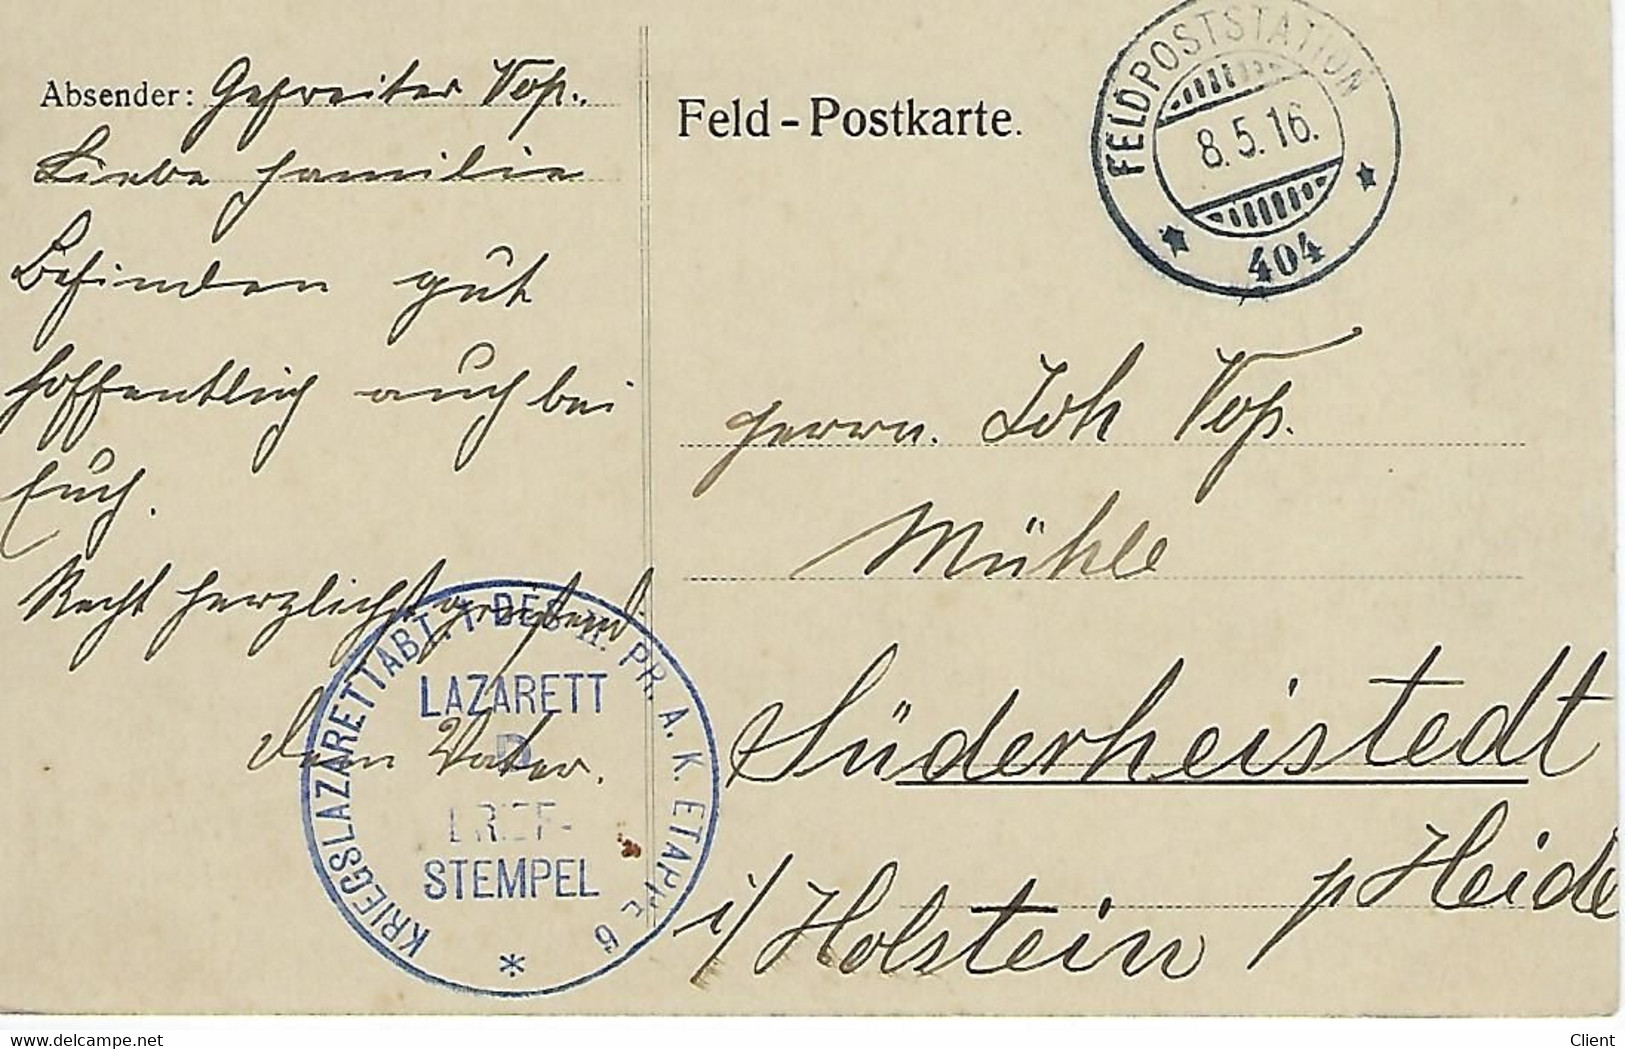 Absender: Gefreiter Voß.
Liebe Familie
Befinden gut
hoffentlich auch bei
Euch.
Recht herzlichst grüßend
Dein Vater.
Feld-Postkarte.
FELDPOSTSTATION
8.5.16.
404
Herrn. Joh Voß.
Mühle
Süderheistedt
p Heide
i/Holstein
KRIEGSLAZARETTABT. 1 DES II. PR. A. K. ETAPPE 6
LAZARETT
D
BRIEF-
STEMPEL
delcampe.net
Client